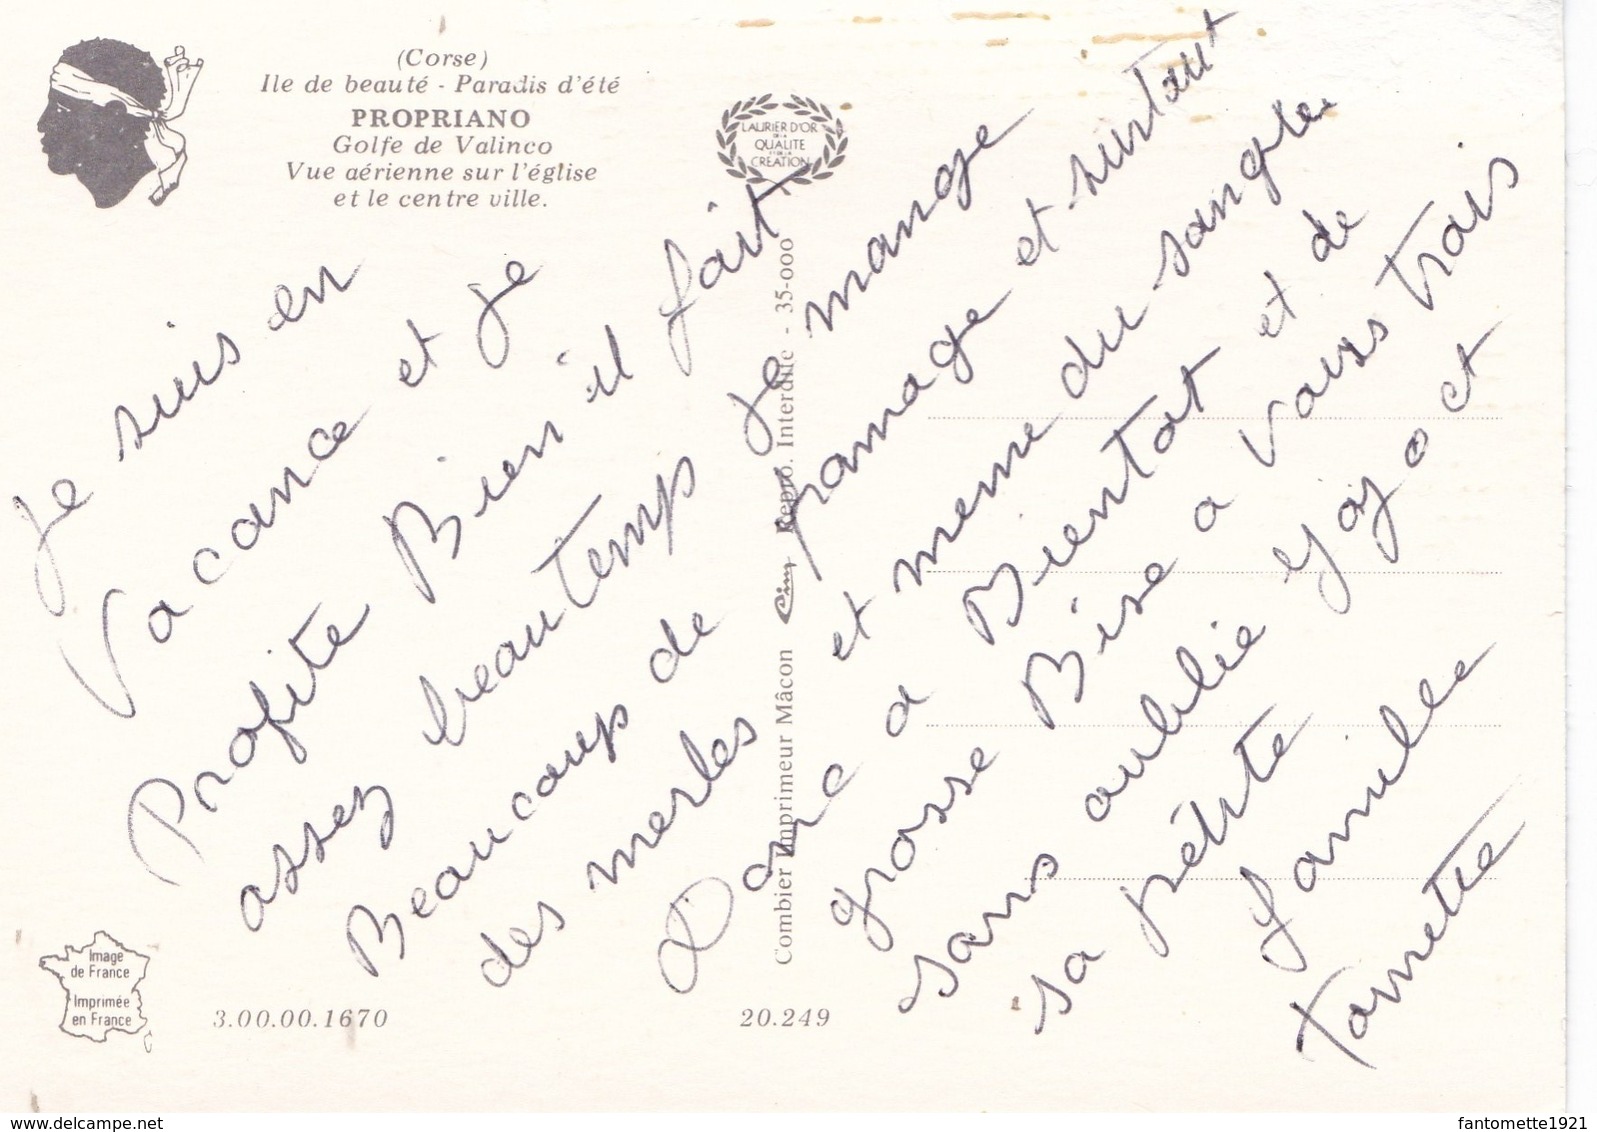 (Corse)
Ile de beauté - Paradis d'été
PROPRIANO
Golfe de Valinco
Vue aérienne sur l'église
et le centre ville.
LAURIER D'OR
DE LA
QUALITE
ET DE LA
CREATION
Je suis en
Vacance et je
Profite Bien il fait
assez beau temps je mange
Beaucoup de fromage et surtout
des merles et meme du sanglier
Donc a Bientot et de
grosse Bise a vous trois
sans oublie yoyo et
sa petite famille
tonette
Combier Imprimeur Mâcon Cim Repro. Interdite - 35-000
Image
de France
Imprimée
en France
3.00.00.1670
20.249
delcampe.net
fantomette1921